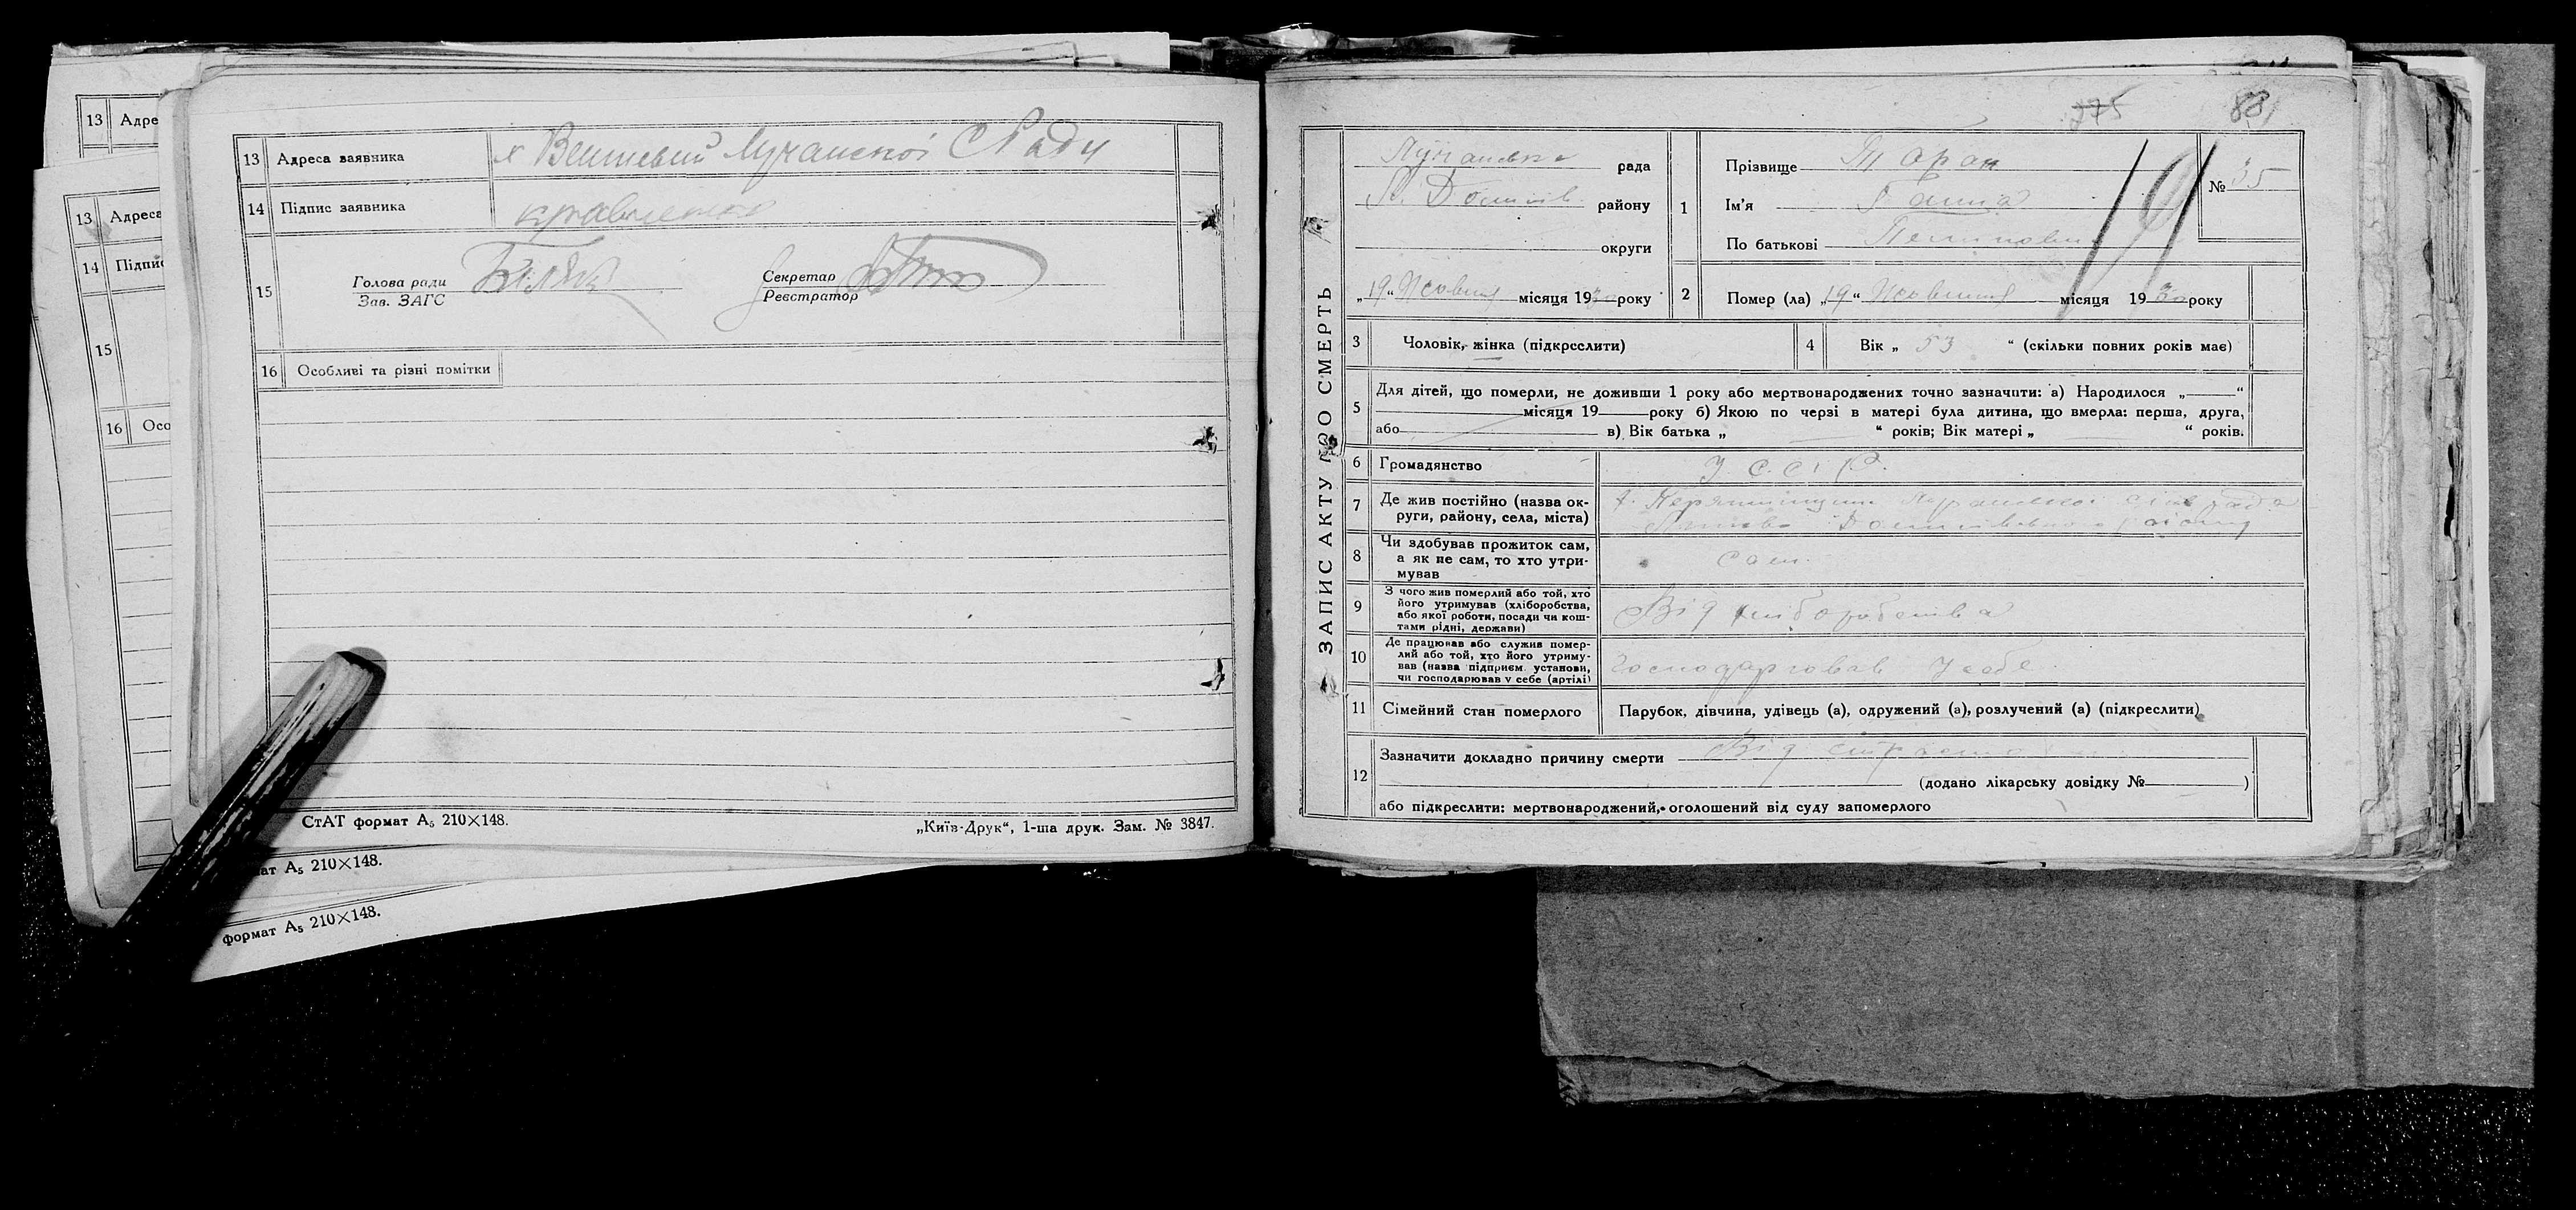 13 Адре
13 Адреса
14 Підпис
15
16 Осо
13 Адреса заявника х Лучанскоі С Ради
14 Підпис заявника кравченко
15 Голова ради Біляк Секретар
Зав. ЗАГС Реєстратор
16 Особливі та різні помітки
СтАТ формат А5 210×148.
„Київ-Друк“, 1-ша друк. Зам. № 3847.
ат А5 210×148.
формат А5 210×148.
275 88
ЗАПИС АКТУ ПРО СМЕРТЬ
Лучанська рада
району
округи
„19“ Жовтня місяця 1930 року
1 Прізвище Таран
Ім’я Ганна
По батькові
№ 35
19
2 Помер (ла) „19“ Жовтня місяця 1930 року
3 Чоловік, жінка (підкреслити)
4 Вік „ 53 “ (скільки повних років має)
5 Для дітей, що померли, не доживши 1 року або мертвонароджених точно зазначити: а) Народилося „ “
місяця 19 року б) Якою по черзі в матері була дитина, що вмерла: перша, друга,
або в) Вік батька „ “ років; Вік матері „ “ років.
6 Громадянство У.С.С.Р.
7 Де жив постійно (назва ок-
руги, району, села, міста) х. Лучанскоі сільради
району
8 Чи здобував прожиток сам,
а як не сам, то хто утри-
мував
сам.
9 З чого жив померлий або той, хто
його утримував (хліборобства,
або якої роботи, посади чи кош-
тами рідні, держави)
Від хліборобства
10 Де працював або служив помер-
лий або той, хто його утриму-
вав (назва підприєм. установи,
чи господарював у себе (артілі)
Господарював У себе
11 Сімейний стан померлого Парубок, дівчина, удівець (а), одружений (а), розлучений (а) (підкреслити)
12 Зазначити докладно причину смерти Від
(додано лікарську довідку № )
або підкреслити: мертвонароджений, оголошений від суду запомерлого